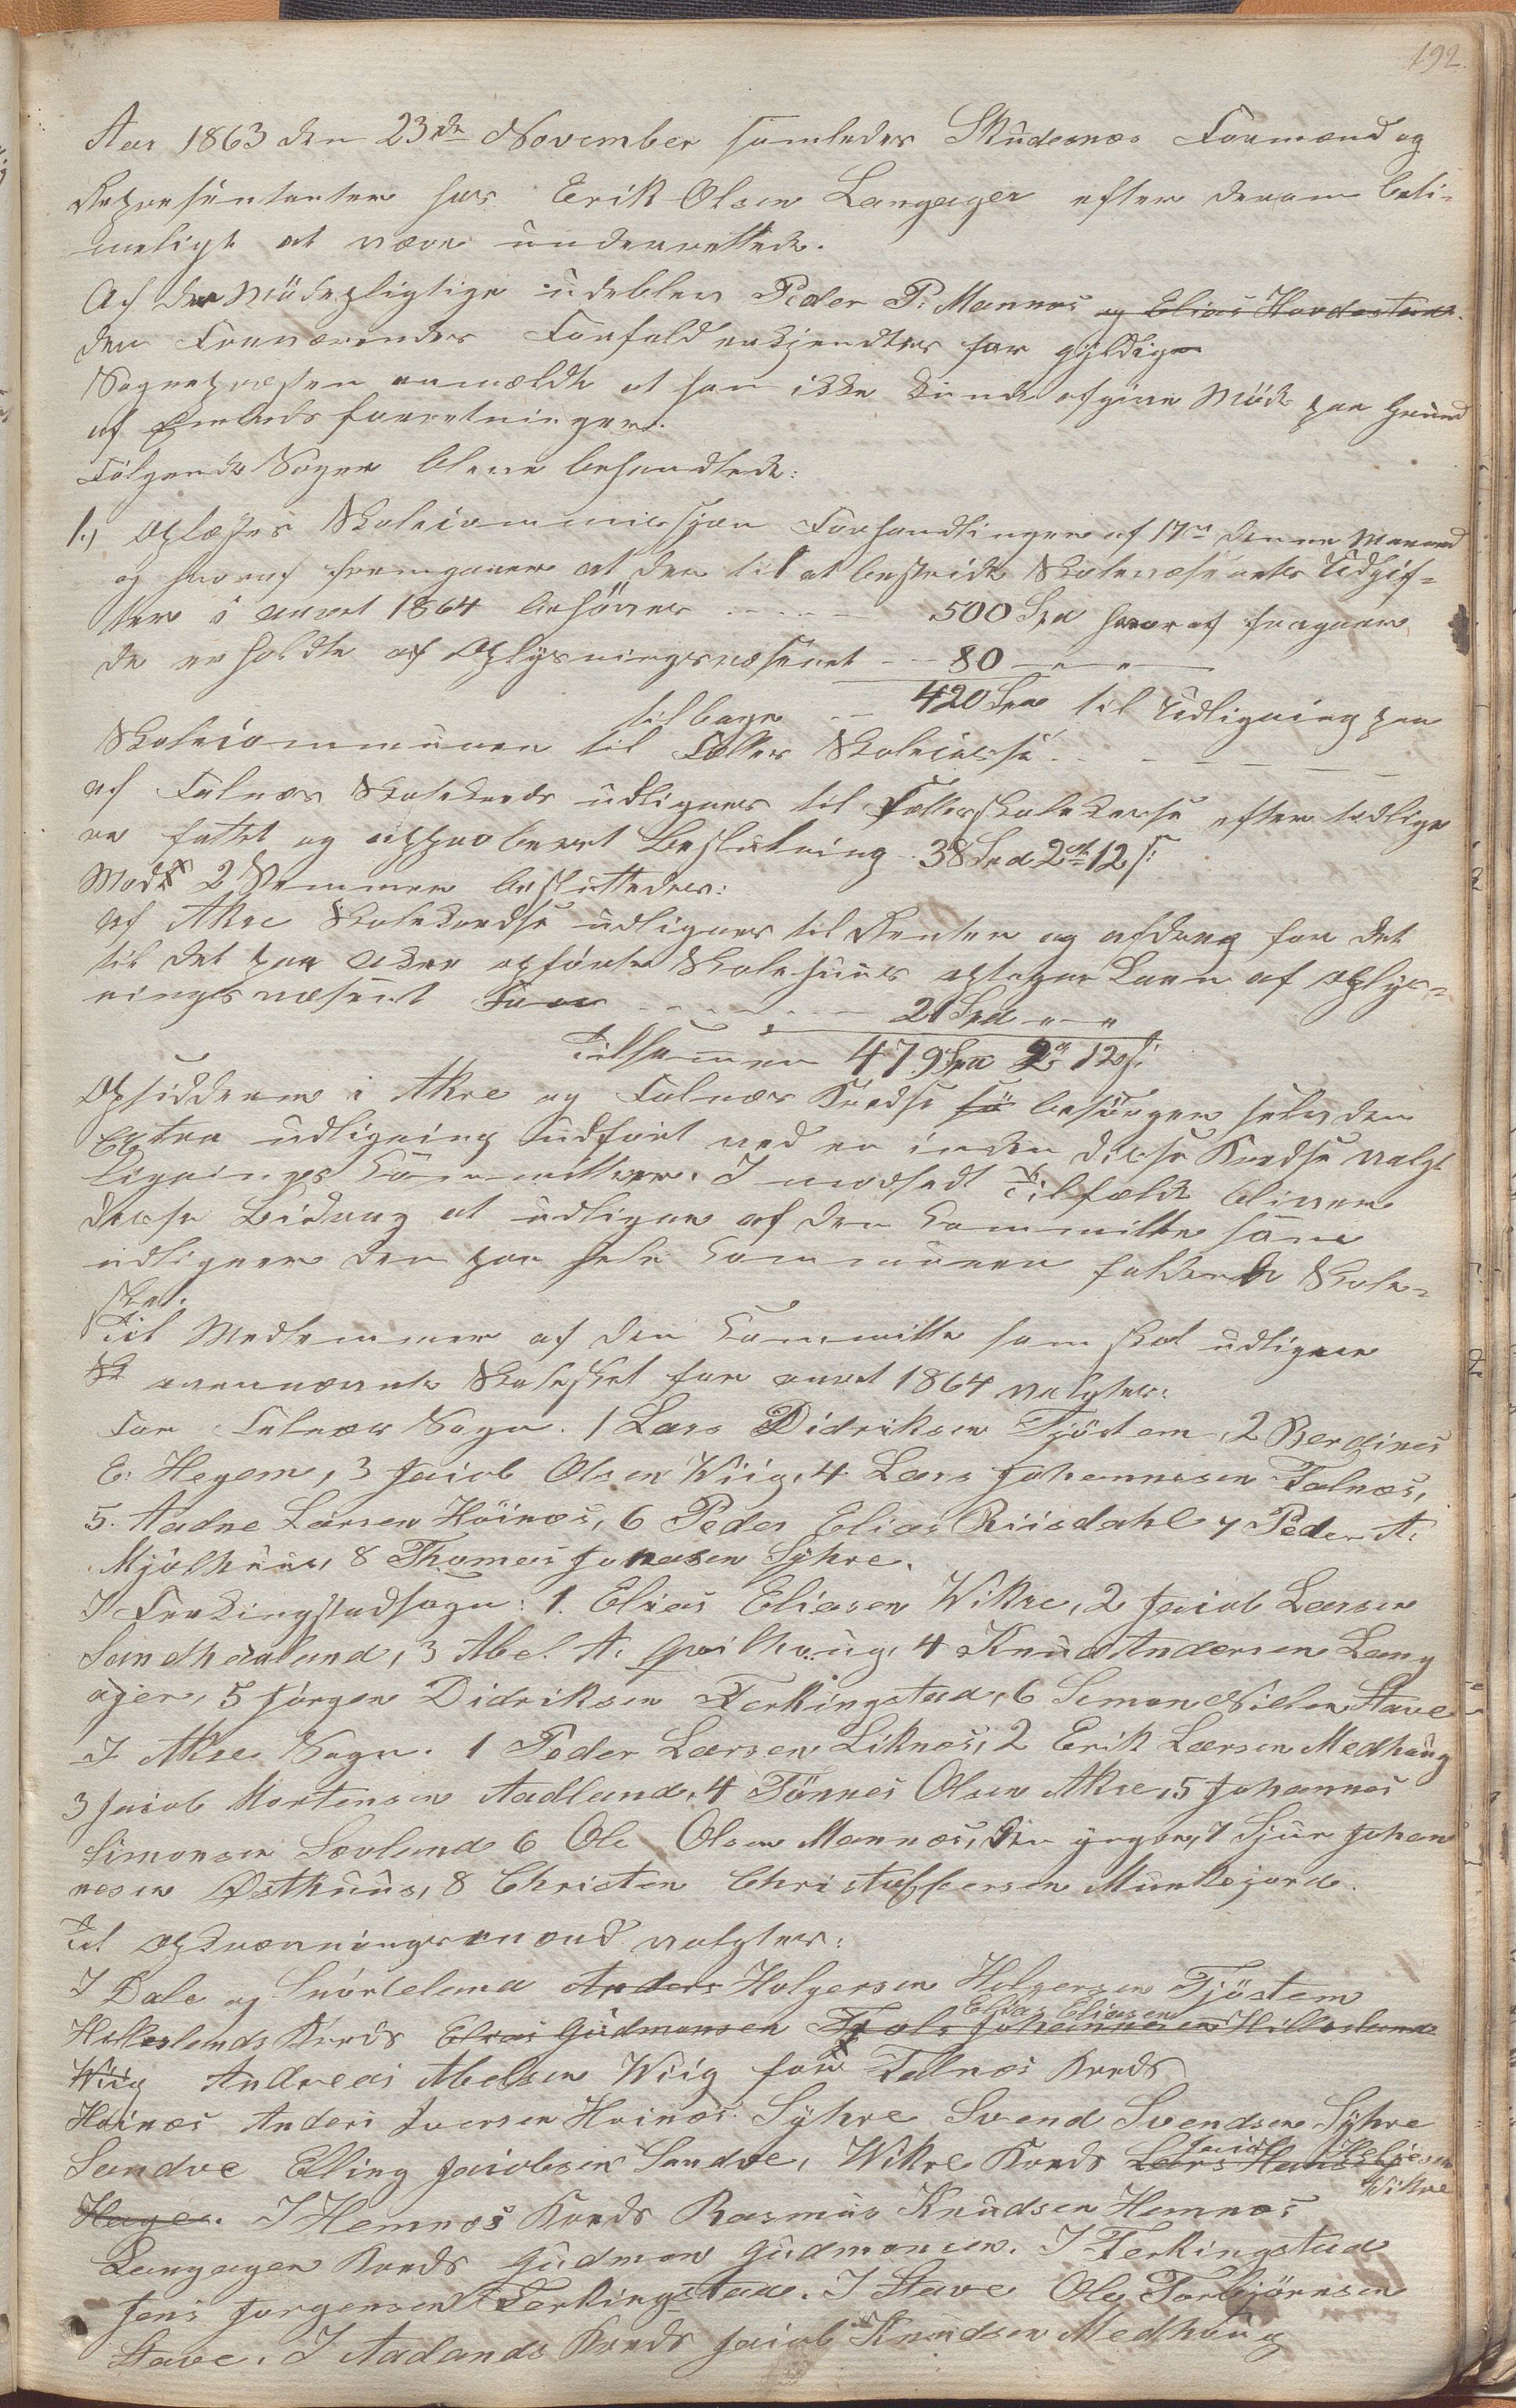 192.
Aar 1863 den 23de November samledes Skudesnæs Formænd og
Repræsentanter hos Erik Olsen Langager efter derom beti-
meligt at være underrettede.
Af de Mödepligtige udeblev Peder P. Mannes og Elias Hovdestad.
den Fraværendes Forfald erkjendtes for gyldig
Sognepræsten anmeldte at han ikke kunde afgive Möde paa Grund
af Embedsforretninger.
Fölgende Sager bleve behandlede:
1.) Oplæstes Skolecommissjon Forhandlinger af 17de denne Maaned
og hvoraf fremgaaer at der til at bestride Skolevæsenets Udgif-
ter i aaret 1864 behöves - - - - 500 Spd hvoraf fragaaer
de erholdte af Oplysningsvæsenet - - 80 - " - "
tilbage - - 420 Spd til Udligning paa
Skolecommunen til Fælles Skolecasse - - - -
af Falnæs Skolekreds udlignes til Fællesskolekasse efter tidlige-
re fattet og approberet Beslutning - 38 Spd 2 ort 12 s:
Mod 2 Stemmer besluttedes:
Af Akre Skolekreds udlignes til Renter og afdrag for det
til det paa Akre opförte Skolehuus optagne Laan af Oplys-
ningsvæsenet - - - - - 21 Spd " - "
Tilsammen 479 Spd 2 ort 12 s:
Opsidderne i Akre og Falnæs Kredse besörger selv den
Extra udligning udfört ved en inden disse Kredse valgt
Lignings Committee. I modsadt Tilfælde bliver
disse Bidrag at udligne af den Committe som
udligner den paa hele Communen faldende Skole-
skat.
Til Medlemmer af den Committe som skal udligne
ovennævnte Skoleskat for aaret 1864 valgtes:
For Falnæs Sogn. 1 Lars Didriksen Tjöstem, 2 Berginus
E. Hegem, 3 Jacob Olsen Wiig, 4 Lars Johannesen Falnæs,
5. Aadne Larsen Höinæs, 6 Peder Elias Riisdahl 7 Peder A.
Mjölhuus, 8 Thomas Jonasen Syhre.
I Ferkingstadsogn: 1. Elias Eliasen Wikre, 2 Jacob Larsen
Sandhaaland, 3 Abel A. Qvilhaug, 4 Knud Andersen Lang
ager, 5 Jörgen Didriksen Ferkingstad, 6 Simon Nielsen Stave
I Akre Sogn. 1 Peder Larsen Liknæs, 2 Erik Larsen Medhaug
3 Jacob Mortensen Aadland, 4 Tönnes Olsen Akre, 5 Johannes
Simonsen Sævland 6 Ole Olsen Mannæs, den yngre, 7 Sjur Johan
nesen Östhuus, 8 Christen Christoffersen Munkejord.
Til Opkrævningsmænd valgtes:
I Dale og Snörteland Anders Holgersen Holgersen Tjöstem
Hilleslands Kreds Elias Gudmonsen Elias Eliasen Johannesen Hillesland
Wiig Andreas Abelsen Wiig for Falnæs Kreds
Höinæs Anders Iversen Höinæs. Syhre Svend Svendsen Syhre
Sandve Elling Jacobsen Sandve, Wikre Kreds Lars Hans Jacob Eliesen
Hage. Wikre I Hemnæs Kreds Rasmus Knudsen Hemnæs
Langager Kreds Gudmon Gudmonsen. I Ferkingstad
Jens Jorgensen Ferkingstad. I Stave Ole Torbjörnsen
Stave. I Aadlands Kreds Jacob Knudsen Medhaug